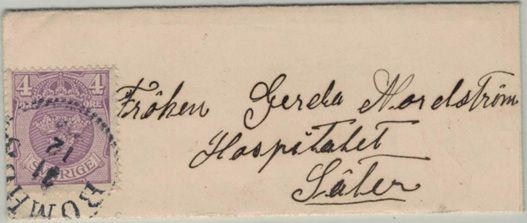 4 4
ÖRE
SVERIGE
12
11
Fröken Gerda Nordström
Hospitalet
Säter